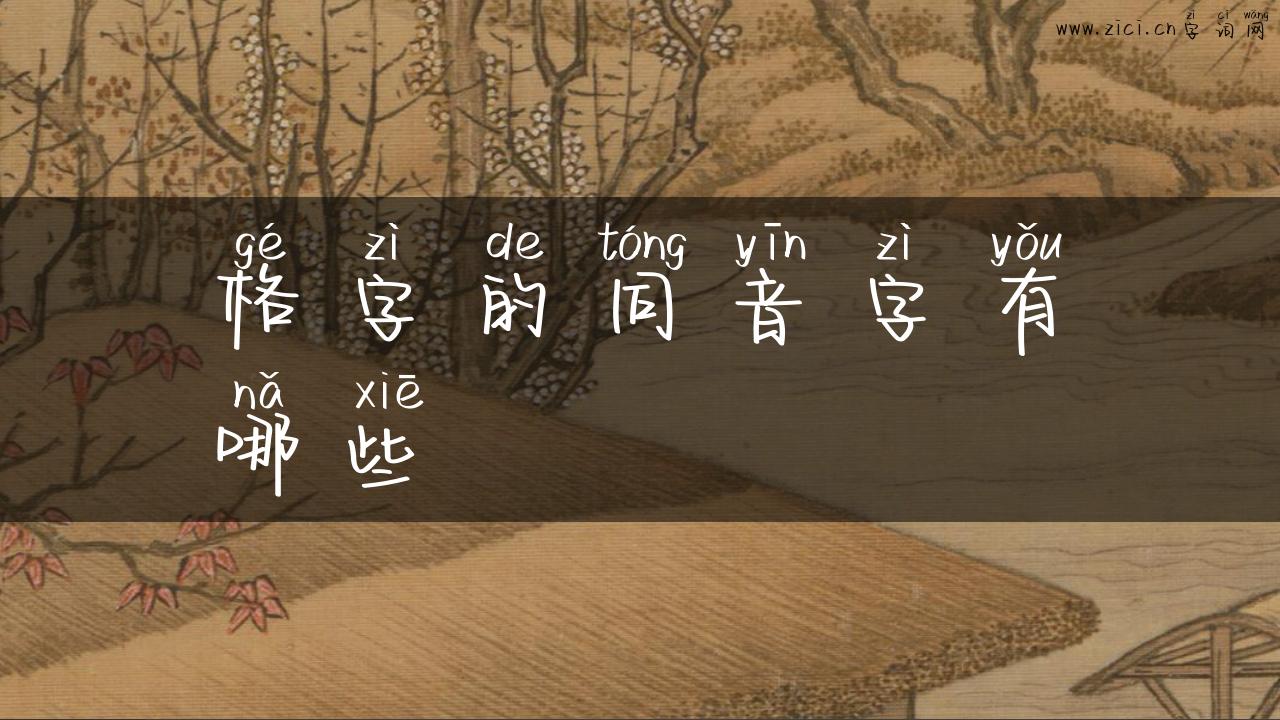 zì cí wǎng
www.zici.cn字词网
gé zì de tóng yīn zì yǒu
格字的同音字有
nǎ xiē
哪些